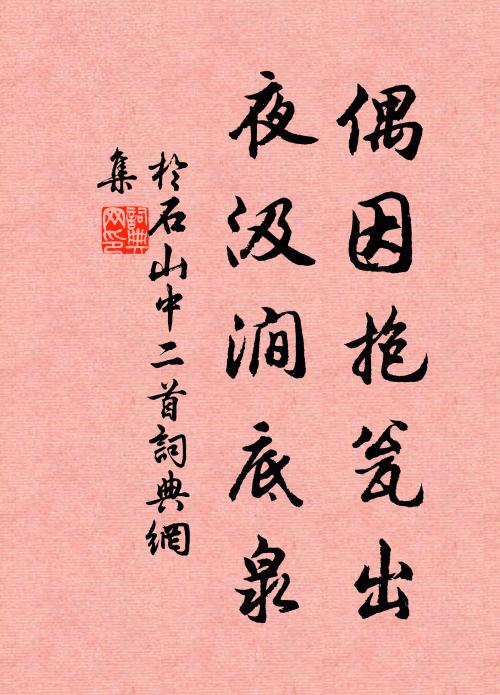 偶因抱瓮出
夜汲涧底泉
於石山中二首詞典網
集
詞典
网印